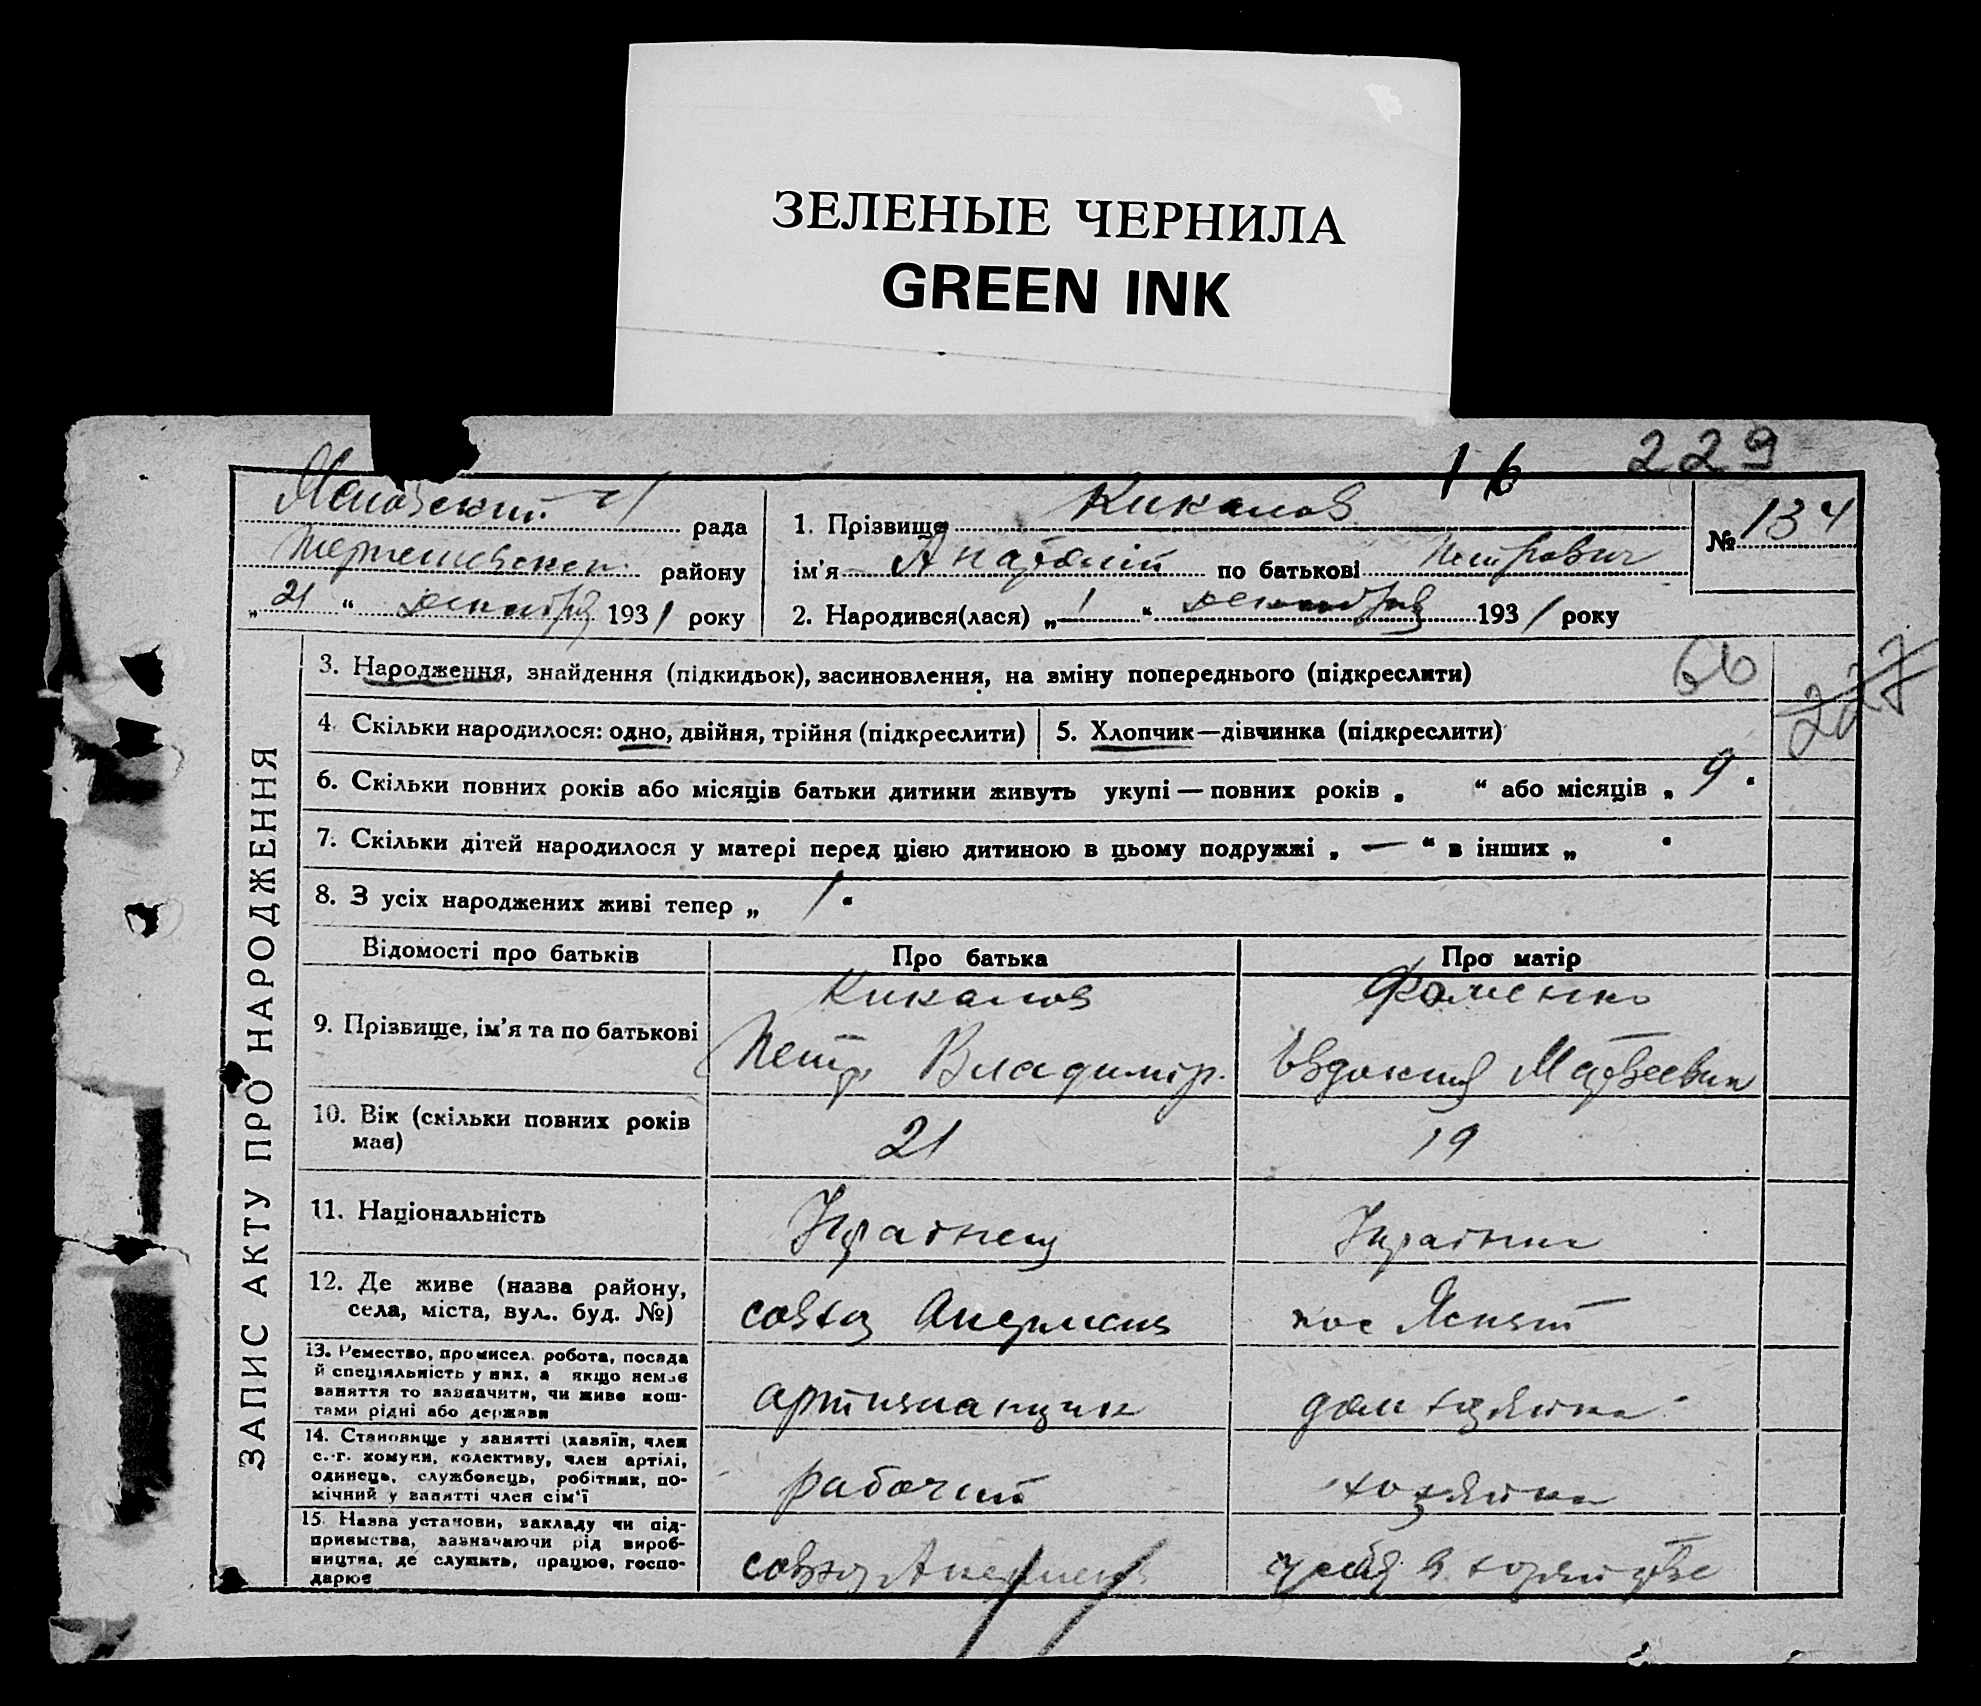 ЗЕЛЕНЫЕ ЧЕРНИЛА
GREEN INK
16 229
рада
району
„ 21 “ декабря 1931 року
1. Прізвище Кикалов
ім'я Анатолій по батькові Петрович
2. Народився(лася) „ 1 “ декабря 1931 року
№ 134
ЗАПИС АКТУ ПРО НАРОДЖЕННЯ
3. Народження, знайдення (підкидьок), засиновлення, на зміну попереднього (підкреслити)
66
227
4. Скільки народилося: одно, двійня, трійня (підкреслити)
5. Хлопчик—дівчинка (підкреслити)
6. Скільки повних років або місяців батьки дитини живуть укупі — повних років „ “ або місяців „ 9 "
7. Скільки дітей народилося у матері перед цією дитиною в цьому подружжі „ — “ в інших „ "
8. З усіх народжених живі тепер „ 1 "
Відомості про батьків Про батька Про матір
9. Прізвище, ім'я та по батькові
Кикалов
Петр Владимір.
Фоменко
Евдокия Матвеевн
10. Вік (скільки повних років має)
21 19
11. Національність
Українец Українка
12. Де живе (назва району,
села, міста, вул.. буд. №)
совхоз пос
13. Ремество, промисел, робота, посада
й спеціяльність у них, а якщо немає
заняття то зазначити, чи живе кош-
тами рідні або держави
дом хозяйка
14. Становище у занятті (хазяїн, член
с.-г. комуни, колективу, член артілі,
одинець, службовець, робітник, по-
мічний у занятті член сім'ї
рабочий хозяйка
15. Назва установи, закладу чи під-
приємства, зазначаючи рід вироб-
ництва, де служить, працює, госпо-
дарює
совхоз